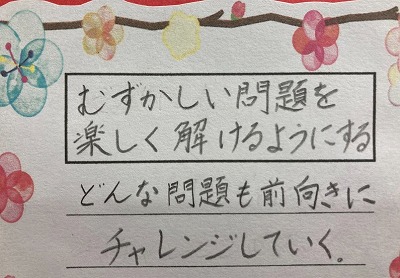 むずかしい問題を
楽しく解けるようにする
どんな問題も前向きに
チャレンジしていく。